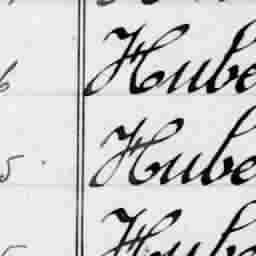 6 Hube
5 Hube
Hube